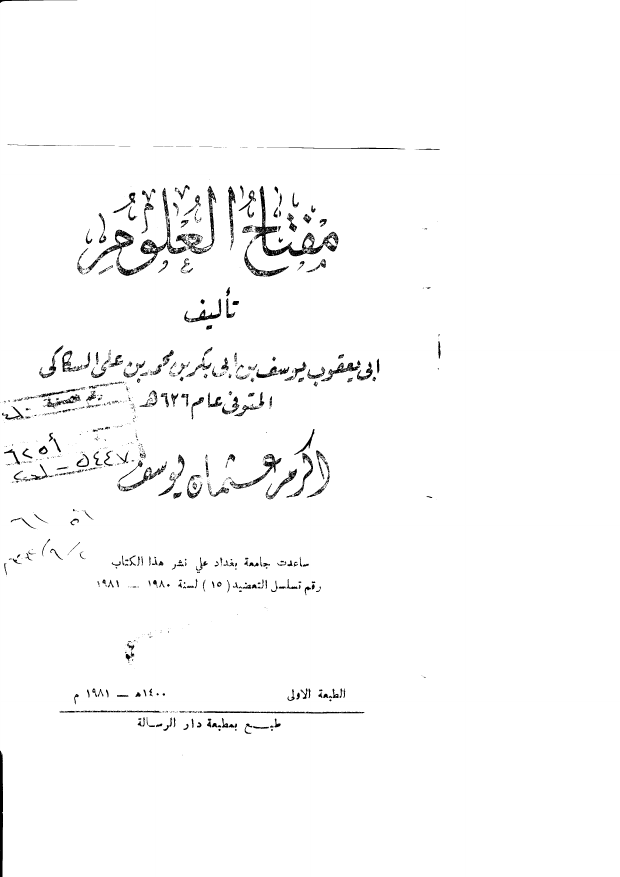 مفتاح العلوم
تأليف
ابى يعقوب يوسف بن ابى بكر بن محمد بن على السكاكى
المتوفى عام ٦٢٦ هـ
اكرم عثمان يوسف
ساعدت جامعة بغداد علي نشر هذا الكتاب
رقم تسلسل التعضيد ( ١٥ ) لسنة ١٩٨٠ — ١٩٨١
الطبعة الاولى ١٤٠٠هـ — ١٩٨١ م
طبـــع بمطبعة دار الرسالة